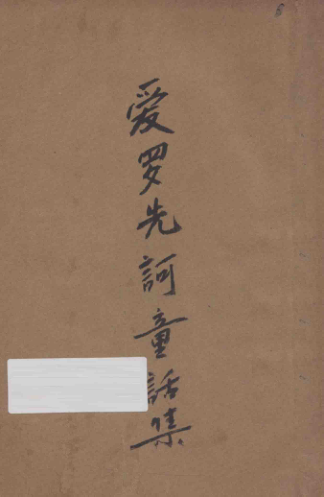 爱罗先訶童話集